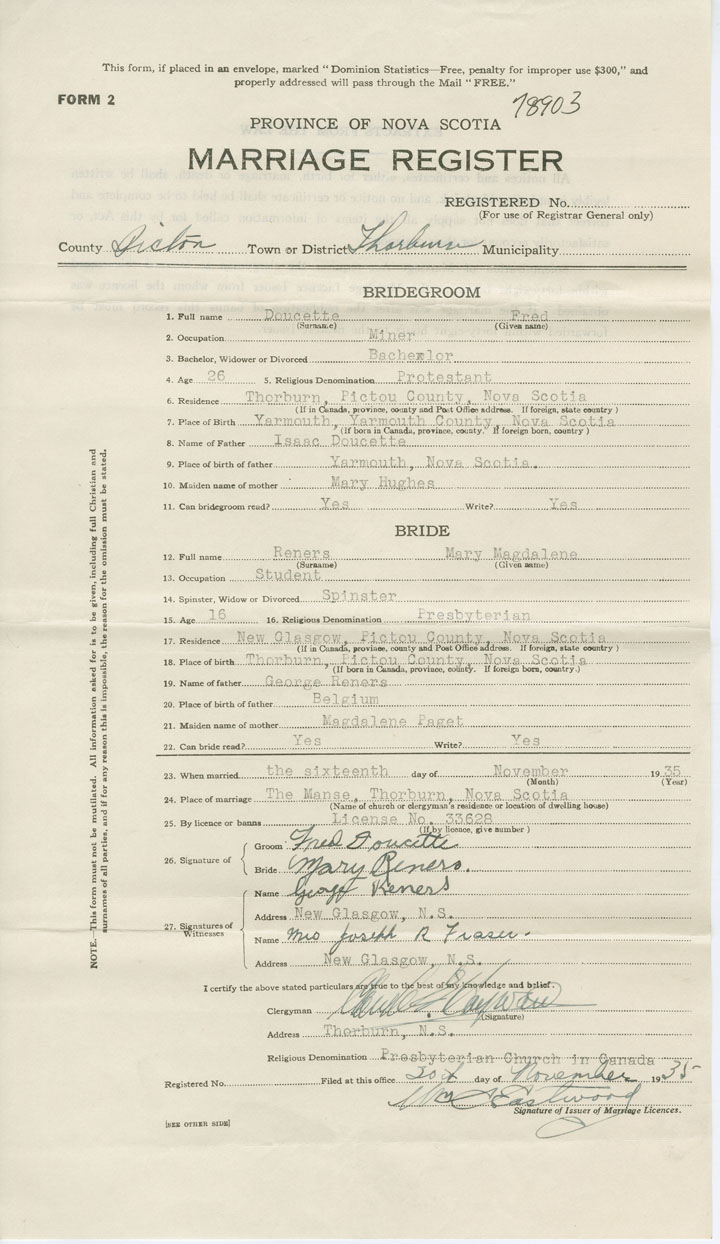 This form, if placed in an envelope, marked "Dominion Statistics—Free, penalty for improper use $300," and
properly addressed will pass through the Mail "FREE."
FORM 2
78903
PROVINCE OF NOVA SCOTIA
MARRIAGE REGISTER
REGISTERED No.
(For use of Registrar General only)
County Pictou Town or District Thorburn Municipality
BRIDEGROOM
1. Full name Doucette Fred
(Surname) (Given name)
2. Occupation Miner
3. Bachelor, Widower or Divorced Bachexlor
4. Age 26 5. Religious Denomination Protestant
6. Residence Thorburn, Pictou County, Nova Scotia
(If in Canada, province, county and Post Office address. If foreign, state country)
7. Place of Birth Yarmouth, Yarmouth County, Nova Scotia
(If born in Canada, province, county. If foreign born, country)
8. Name of Father Isaac Doucette
9. Place of birth of father Yarmouth, Nova Scotia.
10. Maiden name of mother Mary Hughes
11. Can bridegroom read? Yes Write? Yes
BRIDE
12. Full name Reners Mary Magdalene
(Surname) (Given name)
13. Occupation Student
14. Spinster, Widow or Divorced Spinster
15. Age 16 16. Religious Denomination Presbyterian
17. Residence New Glasgow, Pictou County, Nova Scotia
(If in Canada, province, county and Post Office address. If foreign, state country)
18. Place of birth Thorburn, Pictou County, Nova Scotia
(If born in Canada, province, county. If foreign born, country.)
19. Name of father George Reners
20. Place of birth of father Belgium
21. Maiden name of mother Magdalene Paget
22. Can bride read? Yes Write? Yes
23. When married the sixteenth day of November 1935
(Month) (Year)
24. Place of marriage The Manse, Thorburn, Nova Scotia
(Name of church or clergyman's residence or location of dwelling house)
25. By licence or banns License No. 33628
(If by licence, give number)
26. Signature of
Groom Fred Doucette
Bride Mary Reners.
27. Signatures of Witnesses
Name Reners
Address New Glasgow, N.S.
Name Mrs Joseph R Fraser.
Address New Glasgow, N.S.
I certify the above stated particulars are true to the best of my knowledge and belief.
Clergyman
(Signature)
Address Thorburn, N.S.
Religious Denomination Presbyterian Church in Canada
Registered No. Filed at this office day of November 1935
Eastwood
Signature of Issuer of Marriage Licences.
[SEE OTHER SIDE]
NOTE.—This form must not be mutilated. All information asked for is to be given, including full Christian and
surnames of all parties, and if for any reason this is impossible, the reason for the omission must be stated.